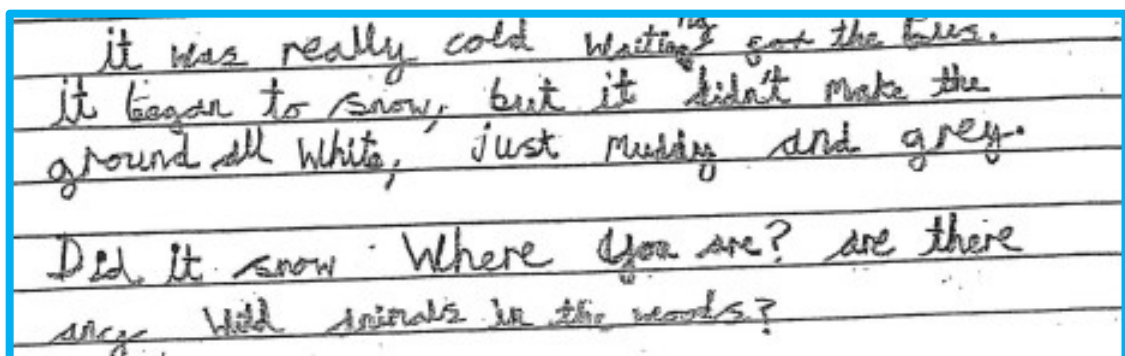 it was really cold waiting for the bus.
it began to snow, but it didn't make the
ground all White, just muddy and grey.
Did it snow Where you are? are there
any Wild animals in the woods?